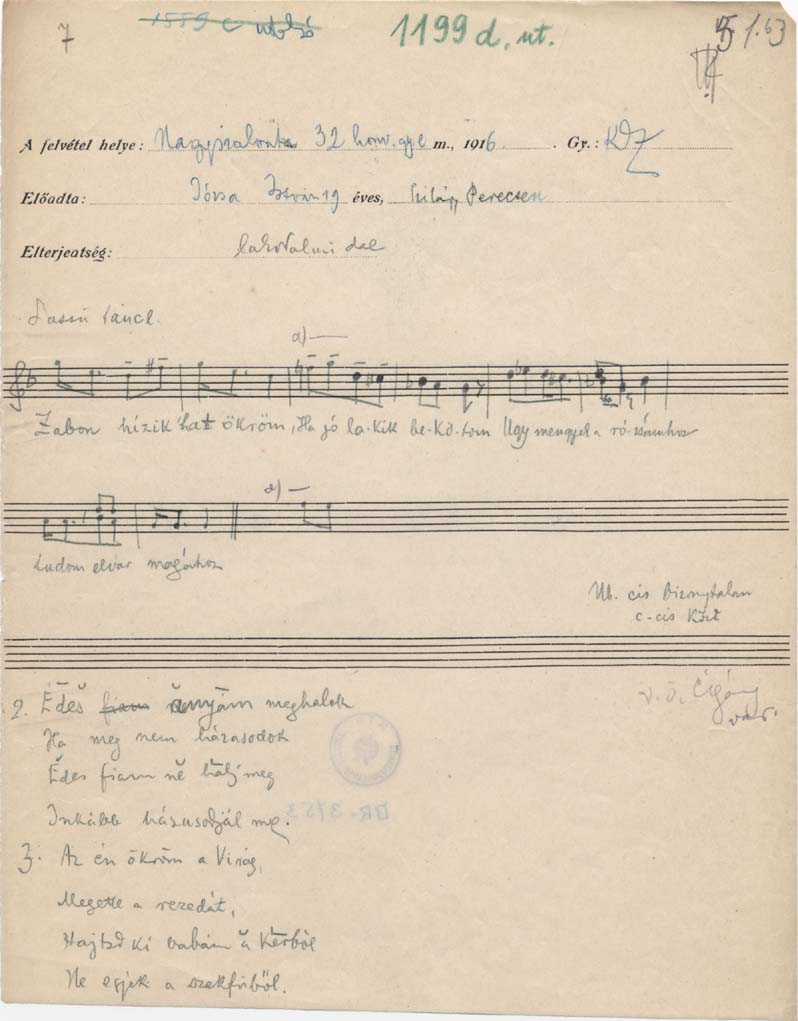 7
1559 c utolsó
1199 d. ut.
1.63
A felvétel helye: Nagyszalonta 32 honv. gye m., 1916. Gy.: KDZ
Előadta: Józsa István 19 éves, Szilágy Perecsen
Elterjeatség: lakodalmi dal
Lassú táncz.
a)
Zabon hízik hat ökröm, Ha jó la-kik be-kö-töm Ugy mengyek a ró-zsámhoz
a)
tudom elvár magához
Nb. cis bizonytalan
c-cis közt
v. ö. Cigány
var.
2. Édes fiam anyám meghalok
Ha meg nem házasodok
Édes fiam ne halj meg
Inkább házusodjál meg.
3. Az én ökröm a Virág,
Megette a rezedát,
Hajtsd ki babám a kertből
Ne egyék a szekfüből.
BR-3753